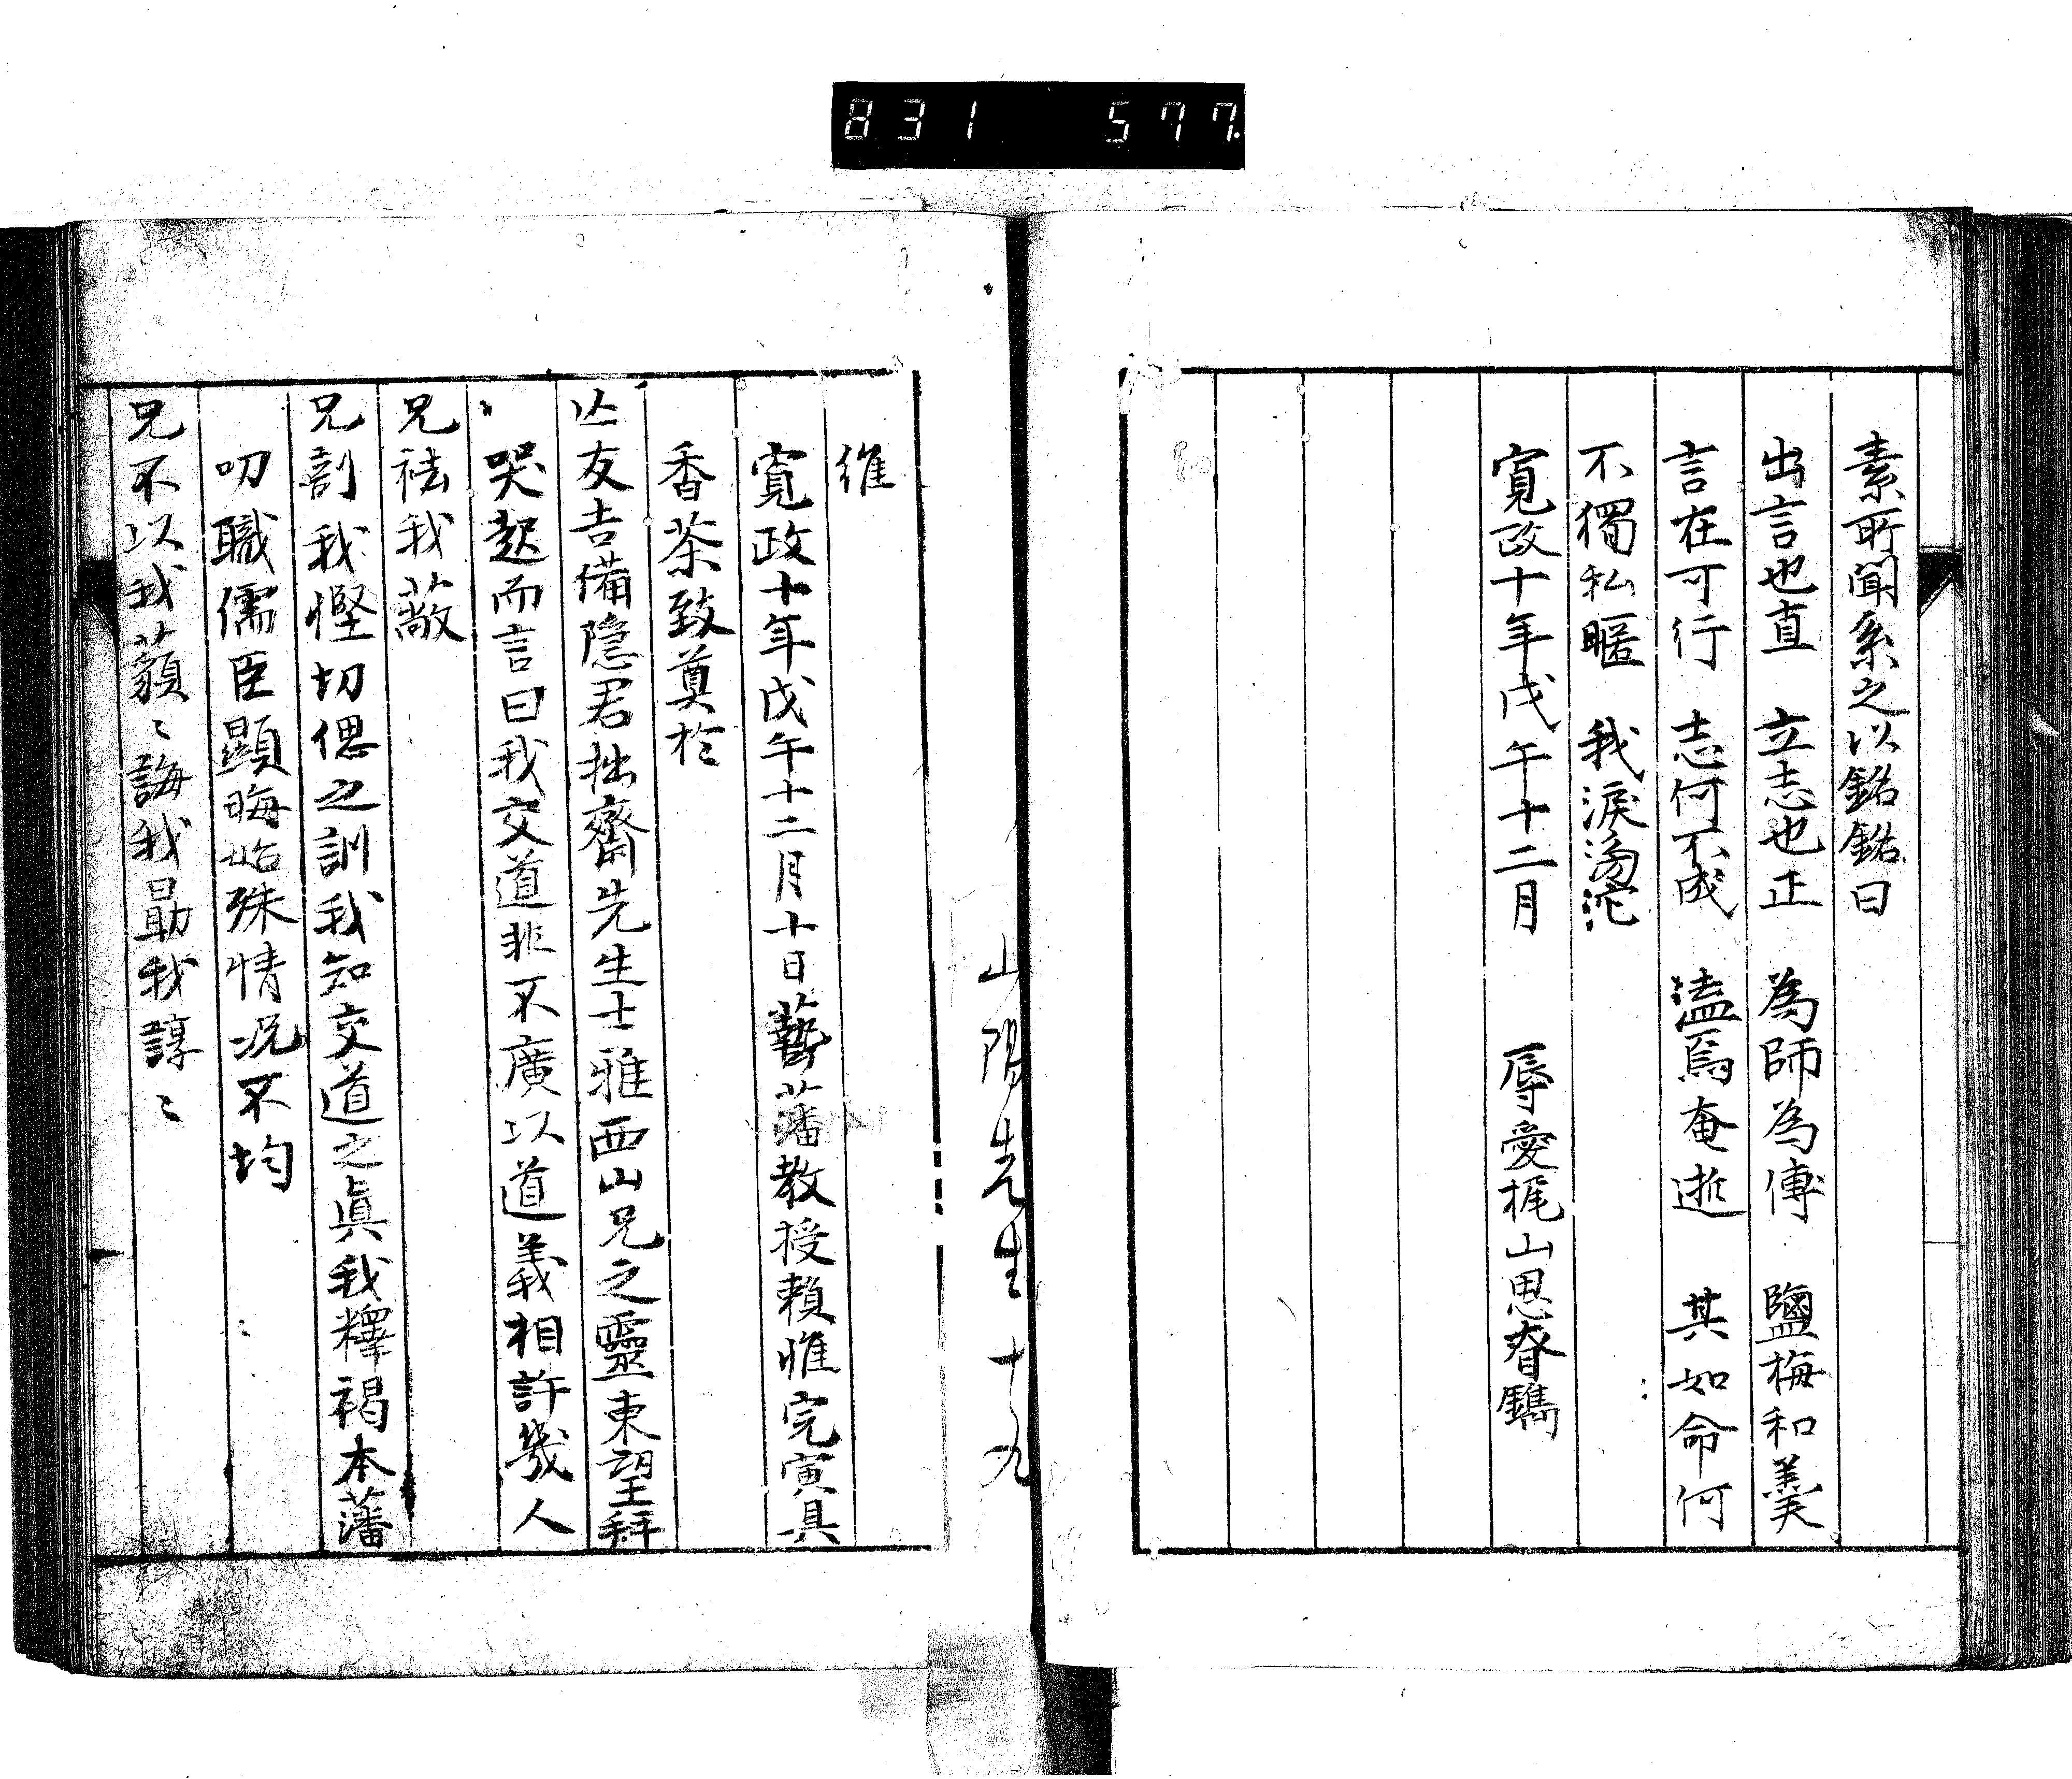 831 577
素所聞系之以銘銘曰
出言也直 立志也正 為師為傅 鹽梅和羹
言在可行 志何不成 溘焉奄逝 其如命何
不獨私暱 我淚滂沱
寬政十年戊午十二月 辱愛梶山思睿鐫
山陽先生 十九
維
寬政十年戊午十二月十日藝藩教授賴惟完寅具
香茶致奠於
亡友吉備隱君拙齋先生士雅西山兄之靈東望拜
哭起而言曰我交道非不廣以道義相許幾人
兄祛我蔽
兄剖我慳切偲之訓我知交道之眞我釋褐本藩
叨職儒臣顯晦始殊情况不均
兄不以我藐〻誨我勗我諄〻